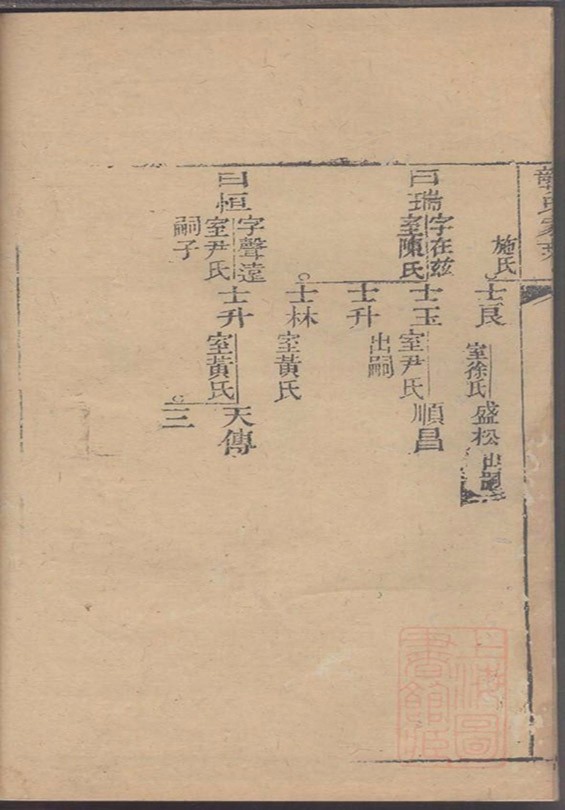 施氏
士良
室徐氏
盛松
出嗣
曰瑞
字在茲
室陳氏
士玉
室尹氏
順昌
士升
出嗣
士林
室黃氏
曰恒
字聲遠
室尹氏
嗣子
士升
室黃氏
天傳
三
上海圖
書館藏